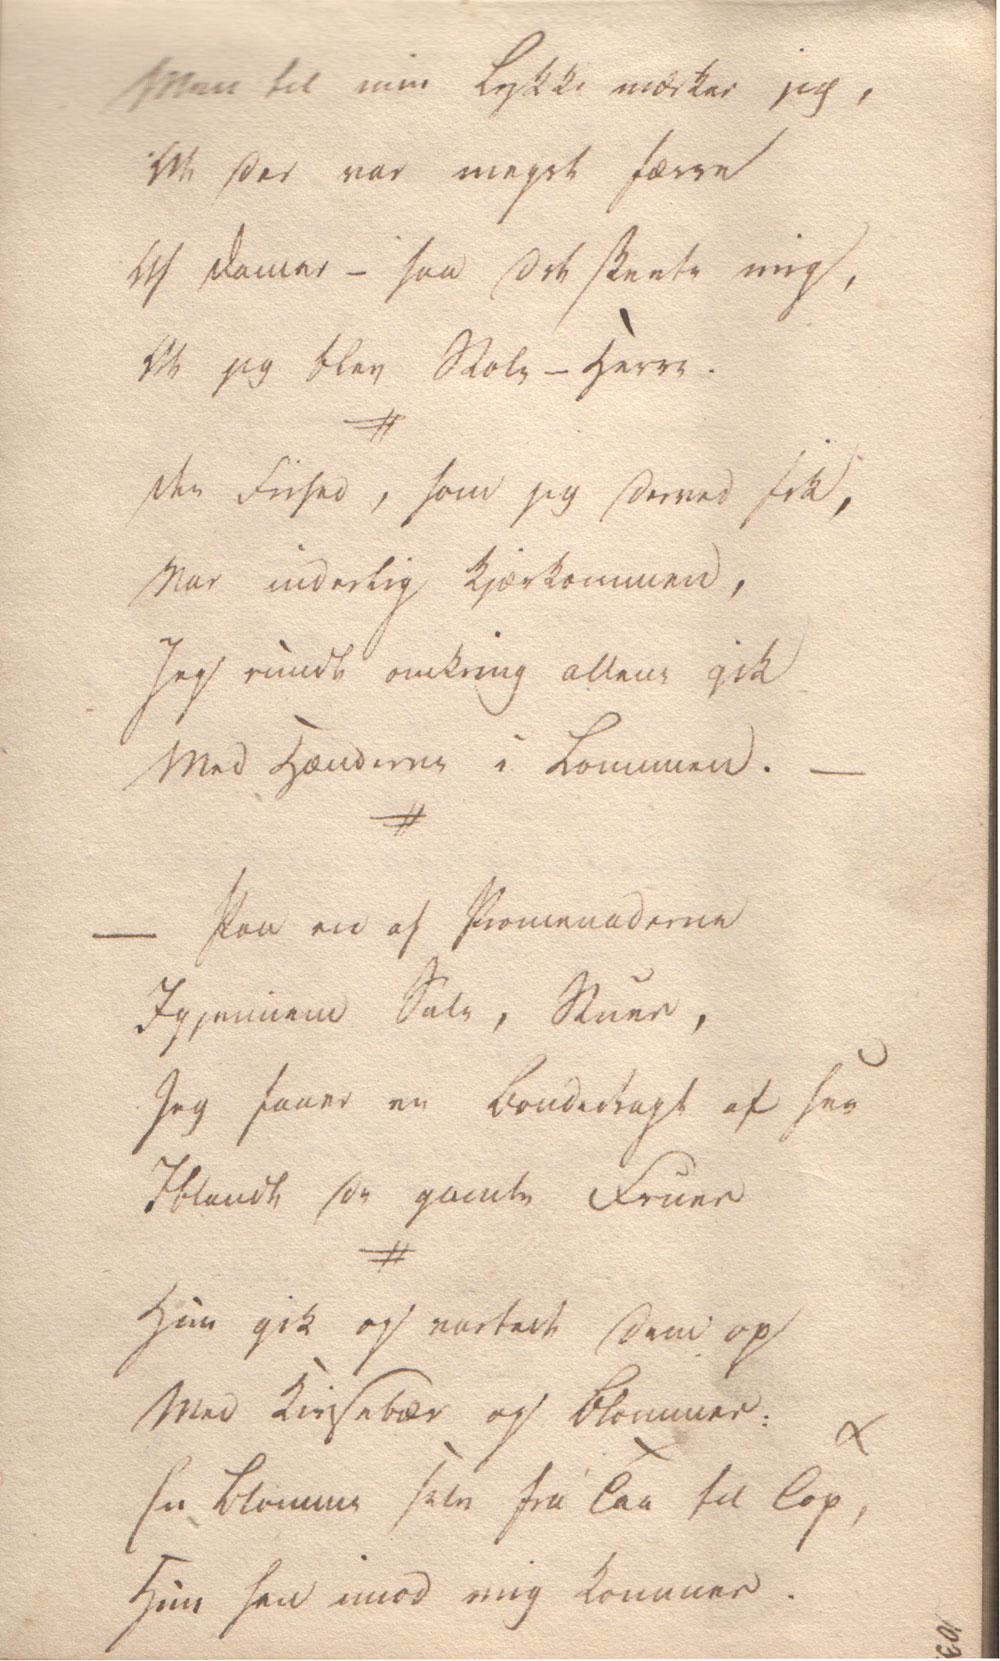 Men til min Lykke mærker jeg,
At der var meget færre
Af Damer – saa det skeete mig,
At jeg blev Skole-Herre.
Den Frihed, som jeg derved fik,
Var inderlig kjærkommen,
Jeg rundt omkring allene gik
Med Hænderne i Lommen. —
— Paa en af Promenaderne
Igjennem Sale, Stuer,
Jeg faaer en Bondedragt at see
Iblandt de gamle Fruer
Hun gik og vartede dem op
Med Kirsebær og Blommer:
En Blomme selv fra Taa til Top,
Hun hen imod mig kommer.